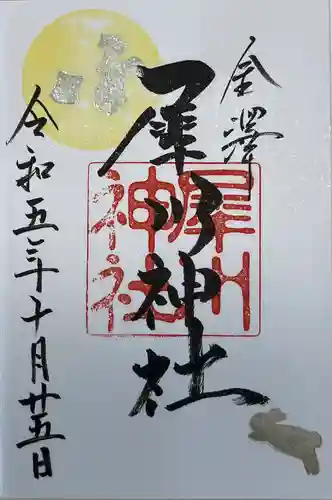 金澤
犀川神社
令和五年十月廿五日
犀川
神社